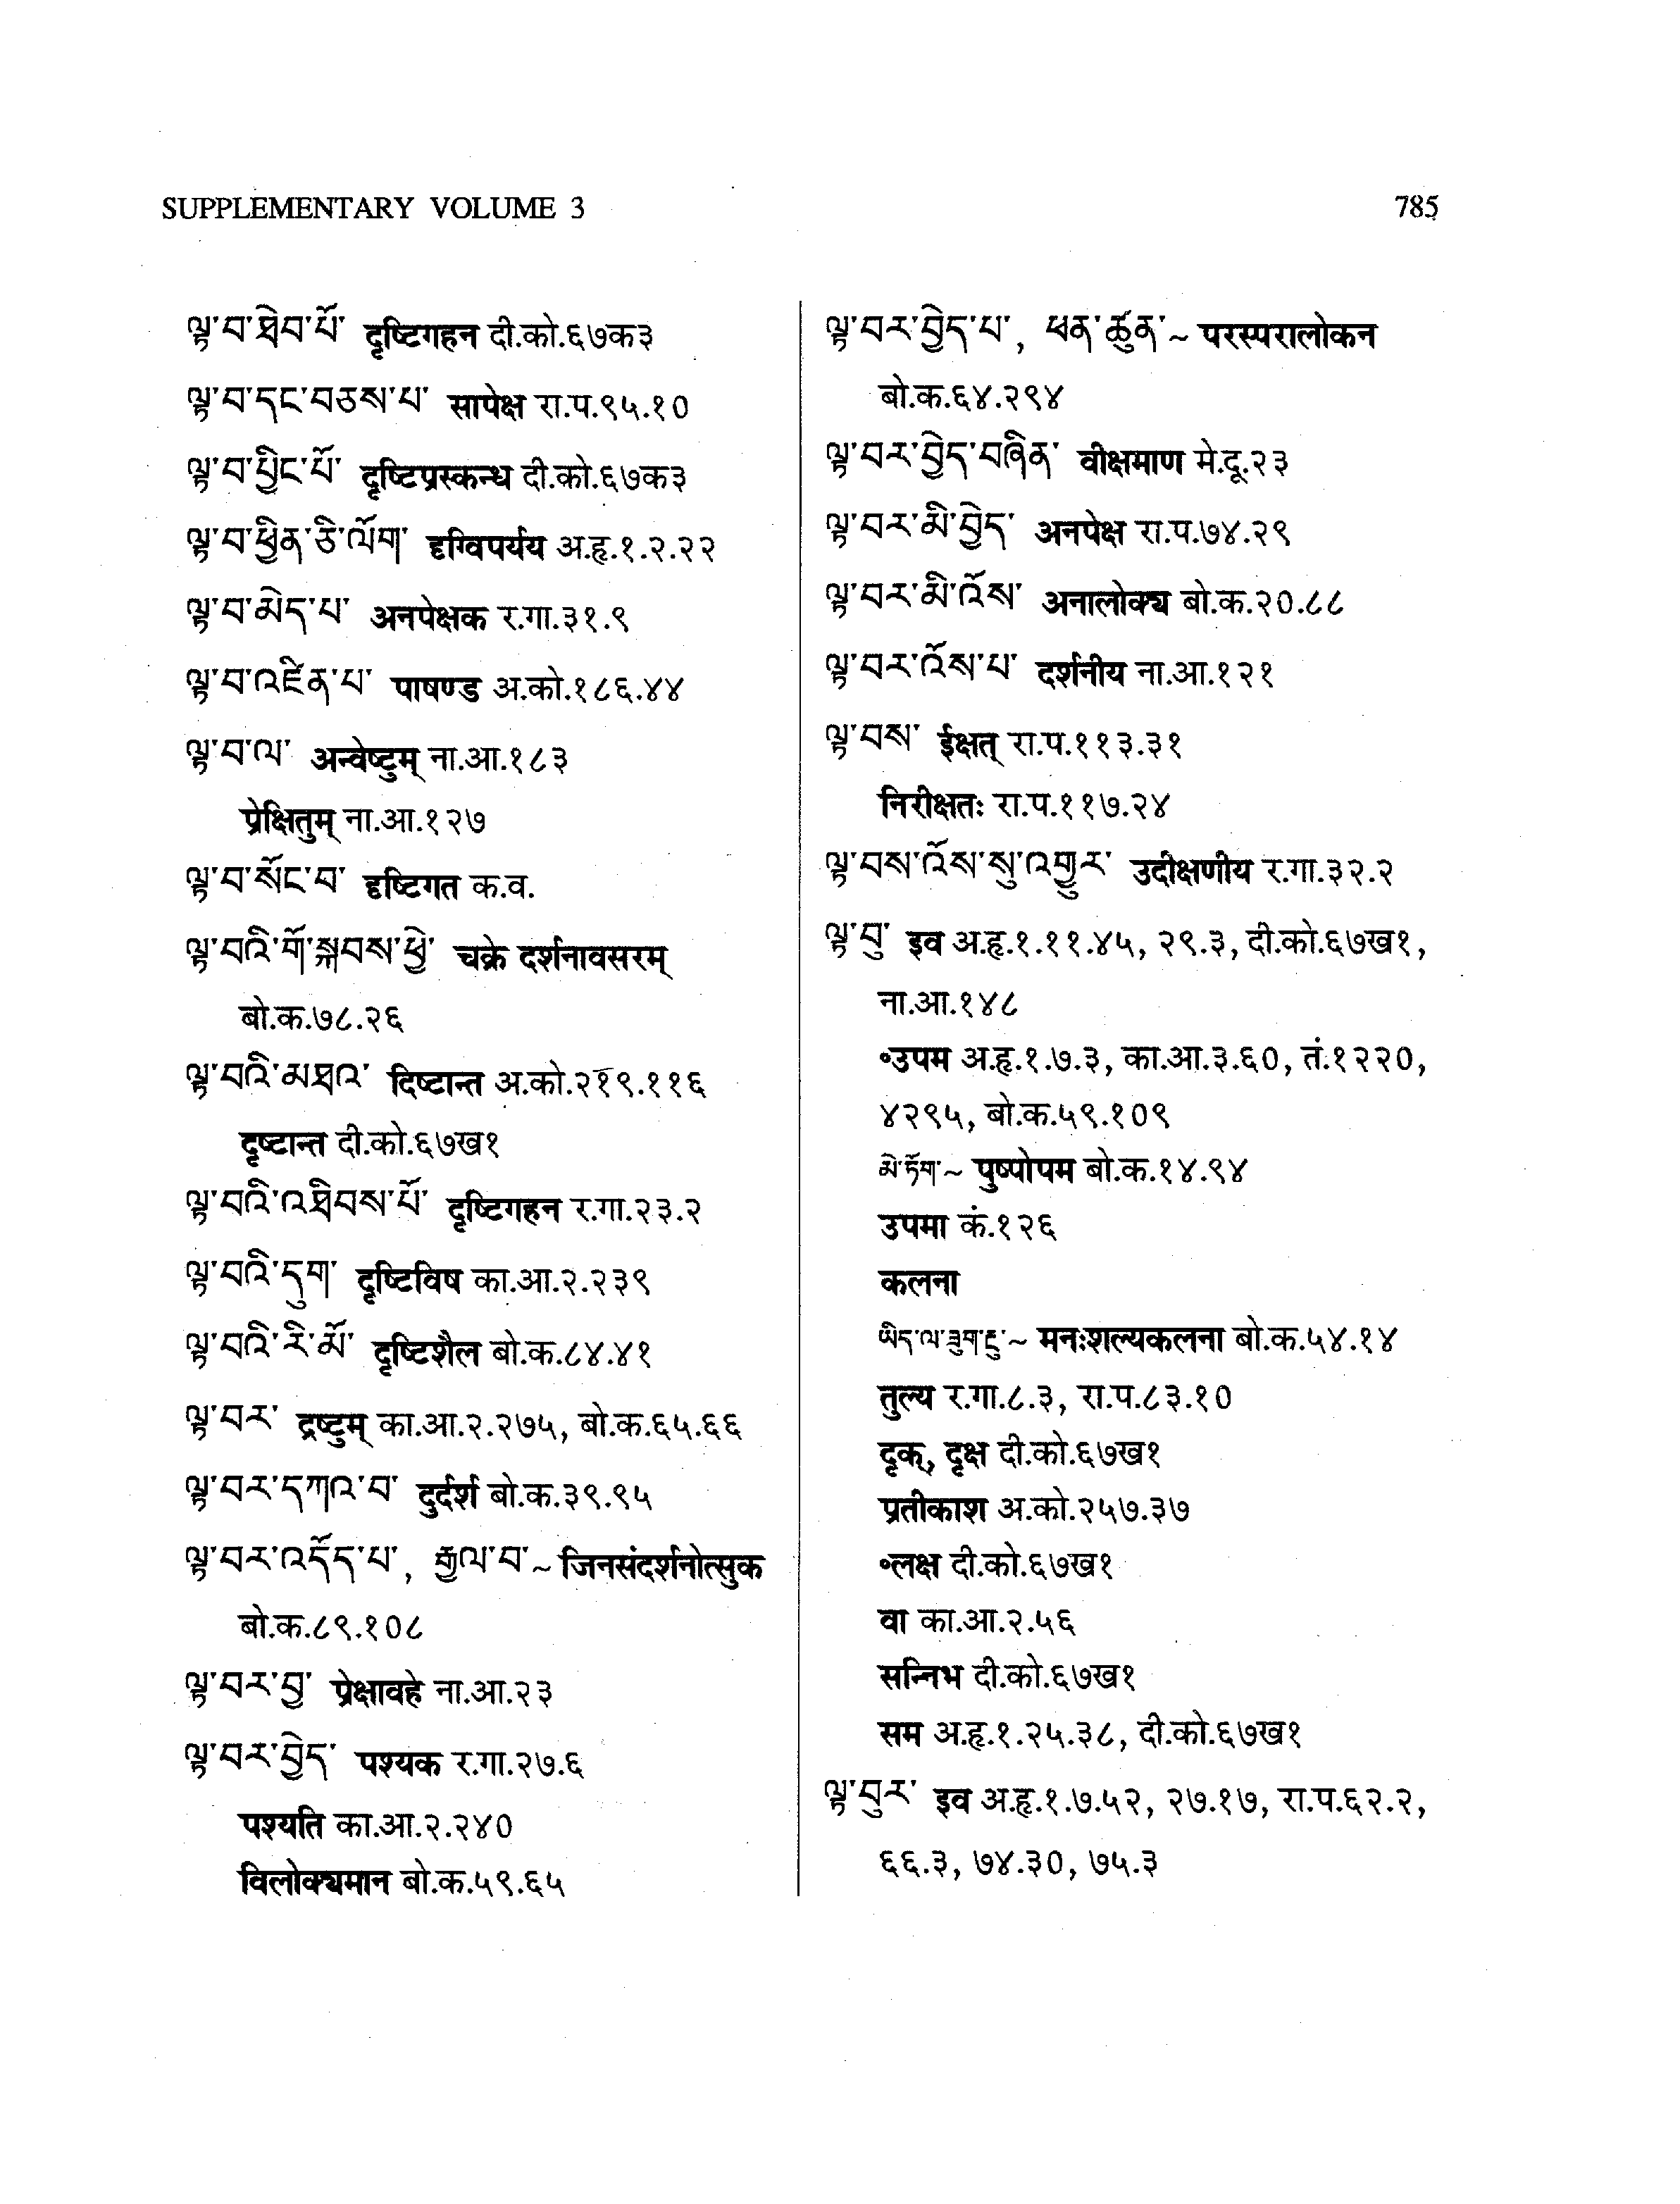 SUPPLEMENTARY VOLUME 3
785
ལྟ་བ་ཐེབ་པོ་ दृष्टिगहन दी.को.६७क३
ལྟ་བ་དང་བཅས་པ་ सापेक्ष रा.प.९५.१०
ལྟ་བ་བྱིང་པོ་ दृष्टिप्रस्कन्ध दी.को.६७क३
ལྟ་བ་ཕྱིན་ཅི་ལོག་ दृग्विपर्यय अ.हृ.१.२.२२
ལྟ་བ་མེད་པ་ अनपेक्षक र.गा.३१.९
ལྟ་བ་འཛིན་པ་ पाषण्ड अ.को.१८६.४४
ལྟ་བ་ལ་ अन्वेष्टुम् ना.आ.१८३
प्रेक्षितुम् ना.आ.१२७
ལྟ་བ་སོང་བ་ दृष्टिगत क.व.
ལྟ་བའི་གོ་སྐབས་ཕྱེ་ चक्रे दर्शनावसरम्
बो.क.७८.२६
ལྟ་བའི་མཐའ་ दिष्टान्त अ.को.२१९.११६
दृष्टान्त दी.को.६७ख१
ལྟ་བའི་འཐིབས་པོ་ दृष्टिगहन र.गा.२३.२
ལྟ་བའི་དུག་ दृष्टिविष का.आ.२.२३९
ལྟ་བའི་རི་མོ་ दृष्टिशैल बो.क.८४.४१
ལྟ་བར་ द्रष्टुम् का.आ.२.२७५, बो.क.६५.६६
ལྟ་བར་དཀའ་བ་ दुर्दर्श बो.क.३९.९५
ལྟ་བར་འདོད་པ་, རྒྱལ་བ་~ जिनसंदर्शनोत्सुक
बो.क.८९.१०८
ལྟ་བར་བྱ་ प्रेक्षावहे ना.आ.२३
ལྟ་བར་བྱེད་ पश्यक र.गा.२७.६
पश्यति का.आ.२.२४०
विलोक्यमान बो.क.५९.६५
ལྟ་བར་བྱེད་པ་, ཕན་ཚུན་~ परस्परालोकन
बो.क.६४.२९४
ལྟ་བར་བྱེད་བཞིན་ वीक्षमाण मे.दू.२३
ལྟ་བར་མི་བྱེད་ अनपेक्ष रा.प.७४.२९
ལྟ་བར་མི་འོས་ अनालोक्य बो.क.२०.८८
ལྟ་བར་འོས་པ་ दर्शनीय ना.आ.१२१
ལྟ་བས་ ईक्षत् रा.प.११३.३१
निरीक्षतः रा.प.११७.२४
ལྟ་བས་འོས་སུ་འགྱུར་ उदीक्षणीय र.गा.३२.२
ལྟ་བུ་ इव अ.हृ.१.११.४५, २९.३, दी.को.६७ख१,
ना.आ.१४८
॰उपम अ.हृ.१.७.३, का.आ.३.६०, तं.१२२०,
४२९५, बो.क.५९.१०९
མེ་ཏོག་~ पुष्पोपम बो.क.१४.९४
उपमा कं.१२६
कलना
ཡིད་ལ་ཟུག་རྔུ་~ मनःशल्यकलना बो.क.५४.१४
तुल्य र.गा.८.३, रा.प.८३.१०
दृक्, दृक्ष दी.को.६७ख१
प्रतीकाश अ.को.२५७.३७
॰लक्ष दी.को.६७ख१
वा का.आ.२.५६
सन्निभ दी.को.६७ख१
सम अ.हृ.१.२५.३८, दी.को.६७ख१
ལྟ་བུར་ इव अ.हृ.१.७.५२, २७.१७, रा.प.६२.२,
६६.३, ७४.३०, ७५.३